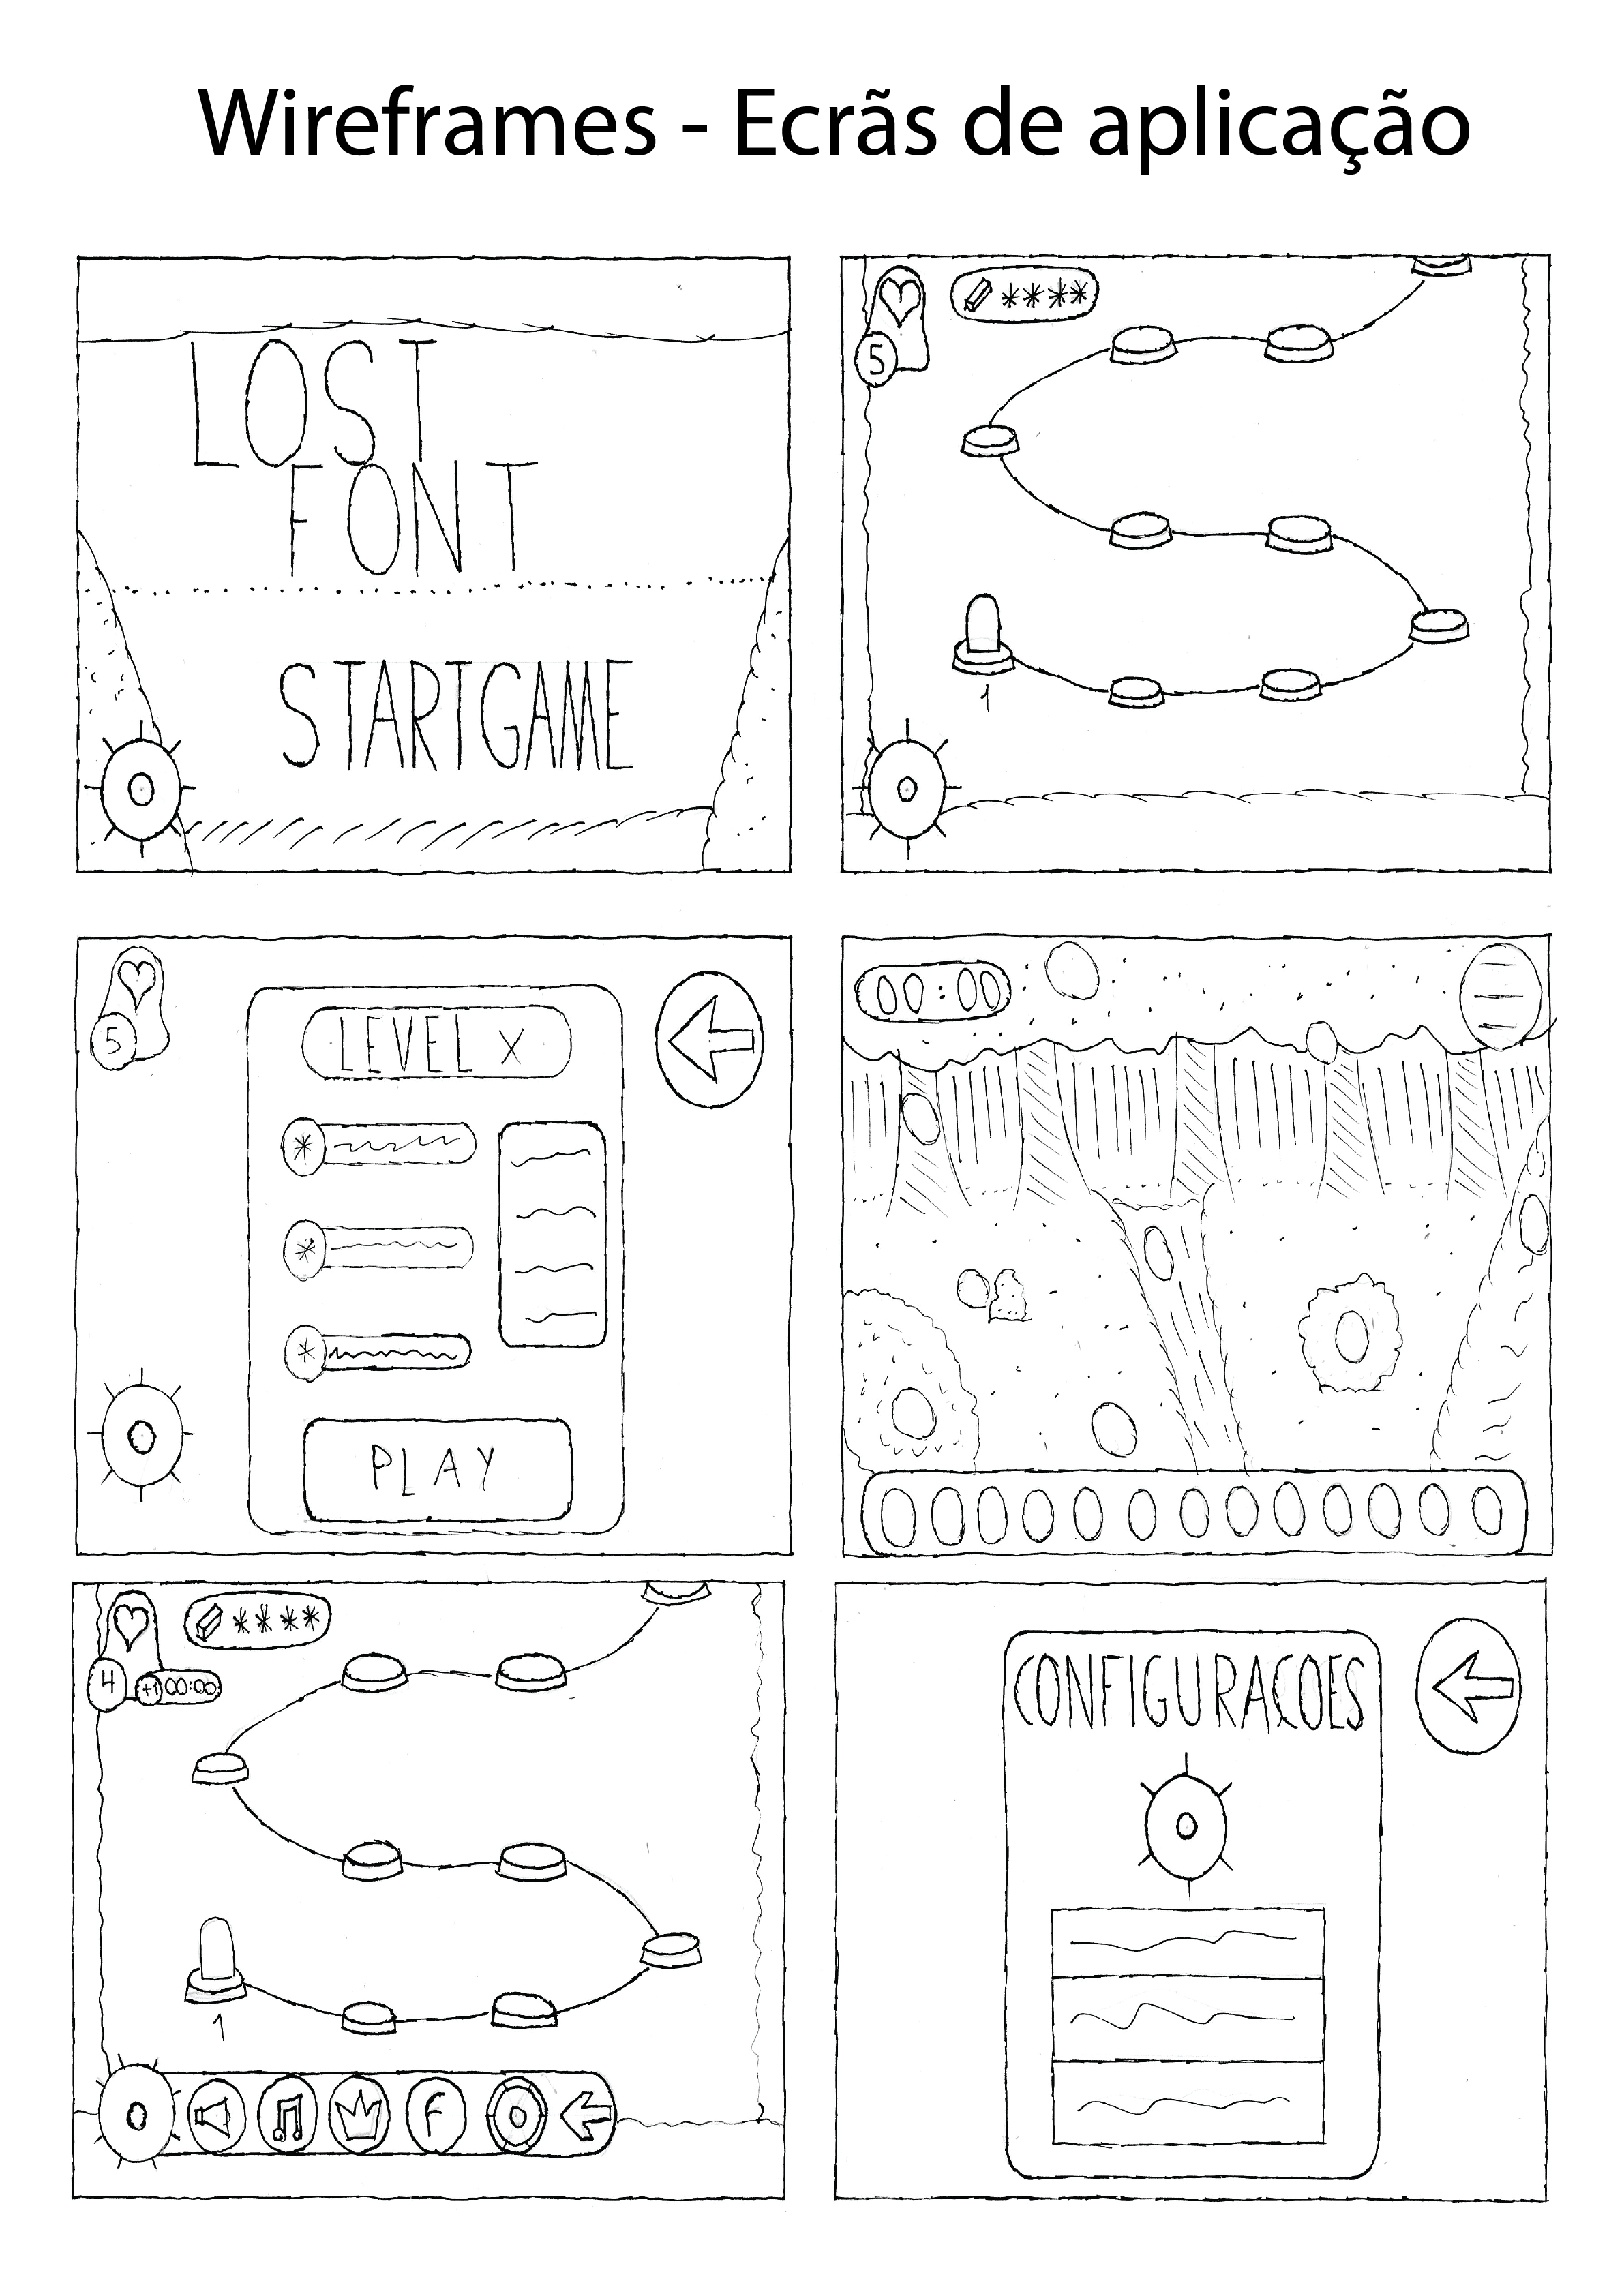 Wireframes - Ecrãs de aplicação
LOST
FONT
STARTGAME
****
5
1
5
LEVEL X
*
*
*
PLAY
00:00
****
4 +1 00:00
1
F
CONFIGURACOES